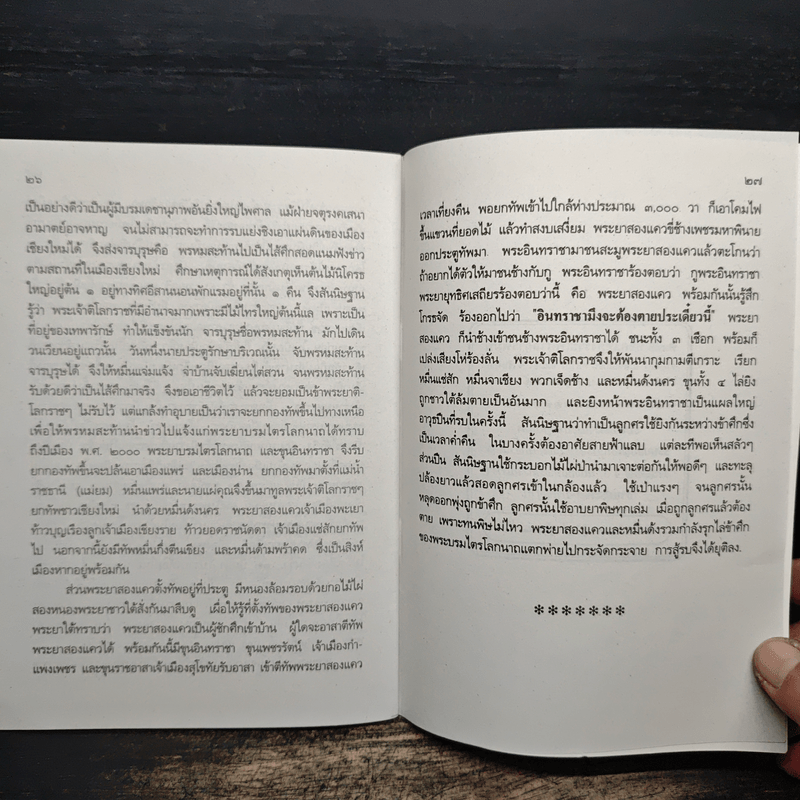 ๒๖
เป็นอย่างดีว่าเป็นผู้มีบรมเดชานุภาพอันยิ่งใหญ่ไพศาล แม้ฝ่ายจตุรงคเสนา
อามาตย์อาจหาญ จนไม่สามารถจะทำการรบแย่งชิงเอาแผ่นดินของเมือง
เชียงใหม่ได้ จึงส่งจารบุรุษคือ พรหมสะท้านไปเป็นไส้ศึกสอดแนมฟังข่าว
ตามสถานที่ในเมืองเชียงใหม่ ศึกษาเหตุการณ์ได้สังเกตุเห็นต้นไม้นิโครธ
ใหญ่อยู่ต้น ๑ อยู่ทางทิศอีสานนอนพักแรมอยู่ที่นั้น ๑ คืน จึงสันนิษฐาน
รู้ว่า พระเจ้าติโลกราชที่มีอำนาจมากเพราะมีไม้ไทรใหญ่ต้นนี้แล เพราะเป็น
ที่อยู่ของเทพารักษ์ ทำให้แข็งขันนัก จารบุรุษชื่อพรหมสะท้าน มักไปเดิน
วนเวียนอยู่แถวนั้น วันหนึ่งนายประตูรักษาบริเวณนั้น จับพรหมสะท้าน
จารบุรุษได้ จึงให้หมื่นแจ่มแจ้ง จ่าบ้านจับเฆี่ยนไต่สวน จนพรหมสะท้าน
รับด้วยดีว่าเป็นไส้ศึกมาจริง จึงขอเอาชีวิตไว้ แล้วจะยอมเป็นข้าพระยาติ-
โลกราชๆ ไม่รับไว้ แต่แกล้งทำอุบายเป็นว่าเราจะยกกองทัพขึ้นไปทางเหนือ
เพื่อให้พรหมสะท้านนำข่าวไปแจ้งแก่พระยาบรมไตรโลกนาถได้ทราบ
ถึงปีเมือง พ.ศ. ๒๐๐๐ พระยาบรมไตรโลกนาถ และขุนอินทราชา จึงรีบ
ยกกองทัพขึ้นจะปล้นเอาเมืองแพร่ และเมืองน่าน ยกกองทัพมาตั้งที่แม่น้ำ
ราชธานี (แม่ยม) หมื่นแพร่และนายแผ่คุณจึงขึ้นมาทูลพระเจ้าติโลกราชๆ
ยกทัพชาวเชียงใหม่ ประกอบด้วยหมื่นด้งนคร พระยาสองแควเจ้าเมืองพะเยา
ท้าวบุญเรืองลูกเจ้าเมืองเชียงราย ท้าวยอดราชนัดดา เจ้าเมืองแช่สักยกทัพ
ไป นอกจากนี้ยังมีทัพหมื่นกึ่งตีนเชียง และหมื่นด้ามพร้าคต ซึ่งเป็นสิงห์
เมืองหากอยู่พร้อมกัน
ส่วนพระยาสองแควตั้งทัพอยู่ที่ประตู มีหนองล้อมรอบด้วยกอไม้ไผ่
สองหนองพระยาชาวใต้สั่งกันมาสืบดู เผื่อให้รู้ที่ตั้งทัพของพระยาสองแคว
พระยาใต้ทราบว่า พระยาสองแควเป็นผู้ชักศึกเข้าบ้าน ผู้ใดจะอาสาตีทัพ
พระยาสองแควได้ พร้อมกันนี้มีขุนอินทราชา ขุนเพชรรัตน์ เจ้าเมืองกำ-
แพงเพชร และขุนราชอาสาเจ้าเมืองสุโขทัยรับอาสา เข้าตีทัพพระยาสองแคว
๒๗
เวลาเที่ยงคืน พอยกทัพเข้าไปใกล้ห่างประมาณ ๓,๐๐๐ วา ก็เอาโคมไฟ
ขึ้นแขวนที่ยอดไม้ แล้วทำสงบเสงี่ยม พระยาสองแควขี่ช้างเพชรมหาพินาย
ออกประตูทัพมา พระอินทราชามาชนสะมูพระยาสองแควแล้วตะโกนว่า
ถ้าอยากได้ตัวให้มาชนช้างกับกู พระอินทราชาร้องตอบว่า กูพระอินทราชา
พระยายุทธิศเสถียรร้องตอบว่านี้ คือ พระยาสองแคว พร้อมกันนั้นรู้สึก
โกรธจัด ร้องออกไปว่า "อินทราชามึงจะต้องตายประเดี๋ยวนี้" พระยา
สองแคว ก็นำช้างเข้าชนช้างพระอินทราชาได้ ชนะทั้ง ๓ เชือก พร้อมก็
เปล่งเสียงโห่ร้องลั่น พระเจ้าติโลกราชจึงให้พันนากุมกามตีเกราะ เรียก
หมื่นแช่สัก หมื่นจาเชียง พวกเจ็ดช้าง และหมื่นด้งนคร ขุนทั้ง ๔ ไล่ยิง
ถูกชาวใต้ล้มตายเป็นอันมาก และยิงหน้าพระอินทราชาเป็นแผลใหญ่
อาวุธปืนที่รบในครั้งนี้ สันนิษฐานว่าทำเป็นลูกศรใช้ยิงกันระหว่างข้าศึกซึ่ง
เป็นเวลาค่ำคืน ในบางครั้งต้องอาศัยสายฟ้าแลบ แต่ละทีพอเห็นสลัวๆ
ส่วนปืน สันนิษฐานใช้กระบอกไม้ไผ่ป่านำมาเจาะต่อกันให้พอดีๆ และทะลุ
ปล้องยาวแล้วสอดลูกศรเข้าในกล้องแล้ว ใช้เป่าแรงๆ จนลูกศรนั้น
หลุดออกพุ่งถูกข้าศึก ลูกศรนั้นใช้อาบยาพิษทุกเล่ม เมื่อถูกลูกศรแล้วต้อง
ตาย เพราะทนพิษไม่ไหว พระยาสองแควและหมื่นด้งรวมกำลังรุกไล่ข้าศึก
ของพระบรมไตรโลกนาถแตกพ่ายไปกระจัดกระจาย การสู้รบจึงได้ยุติลง.
*******